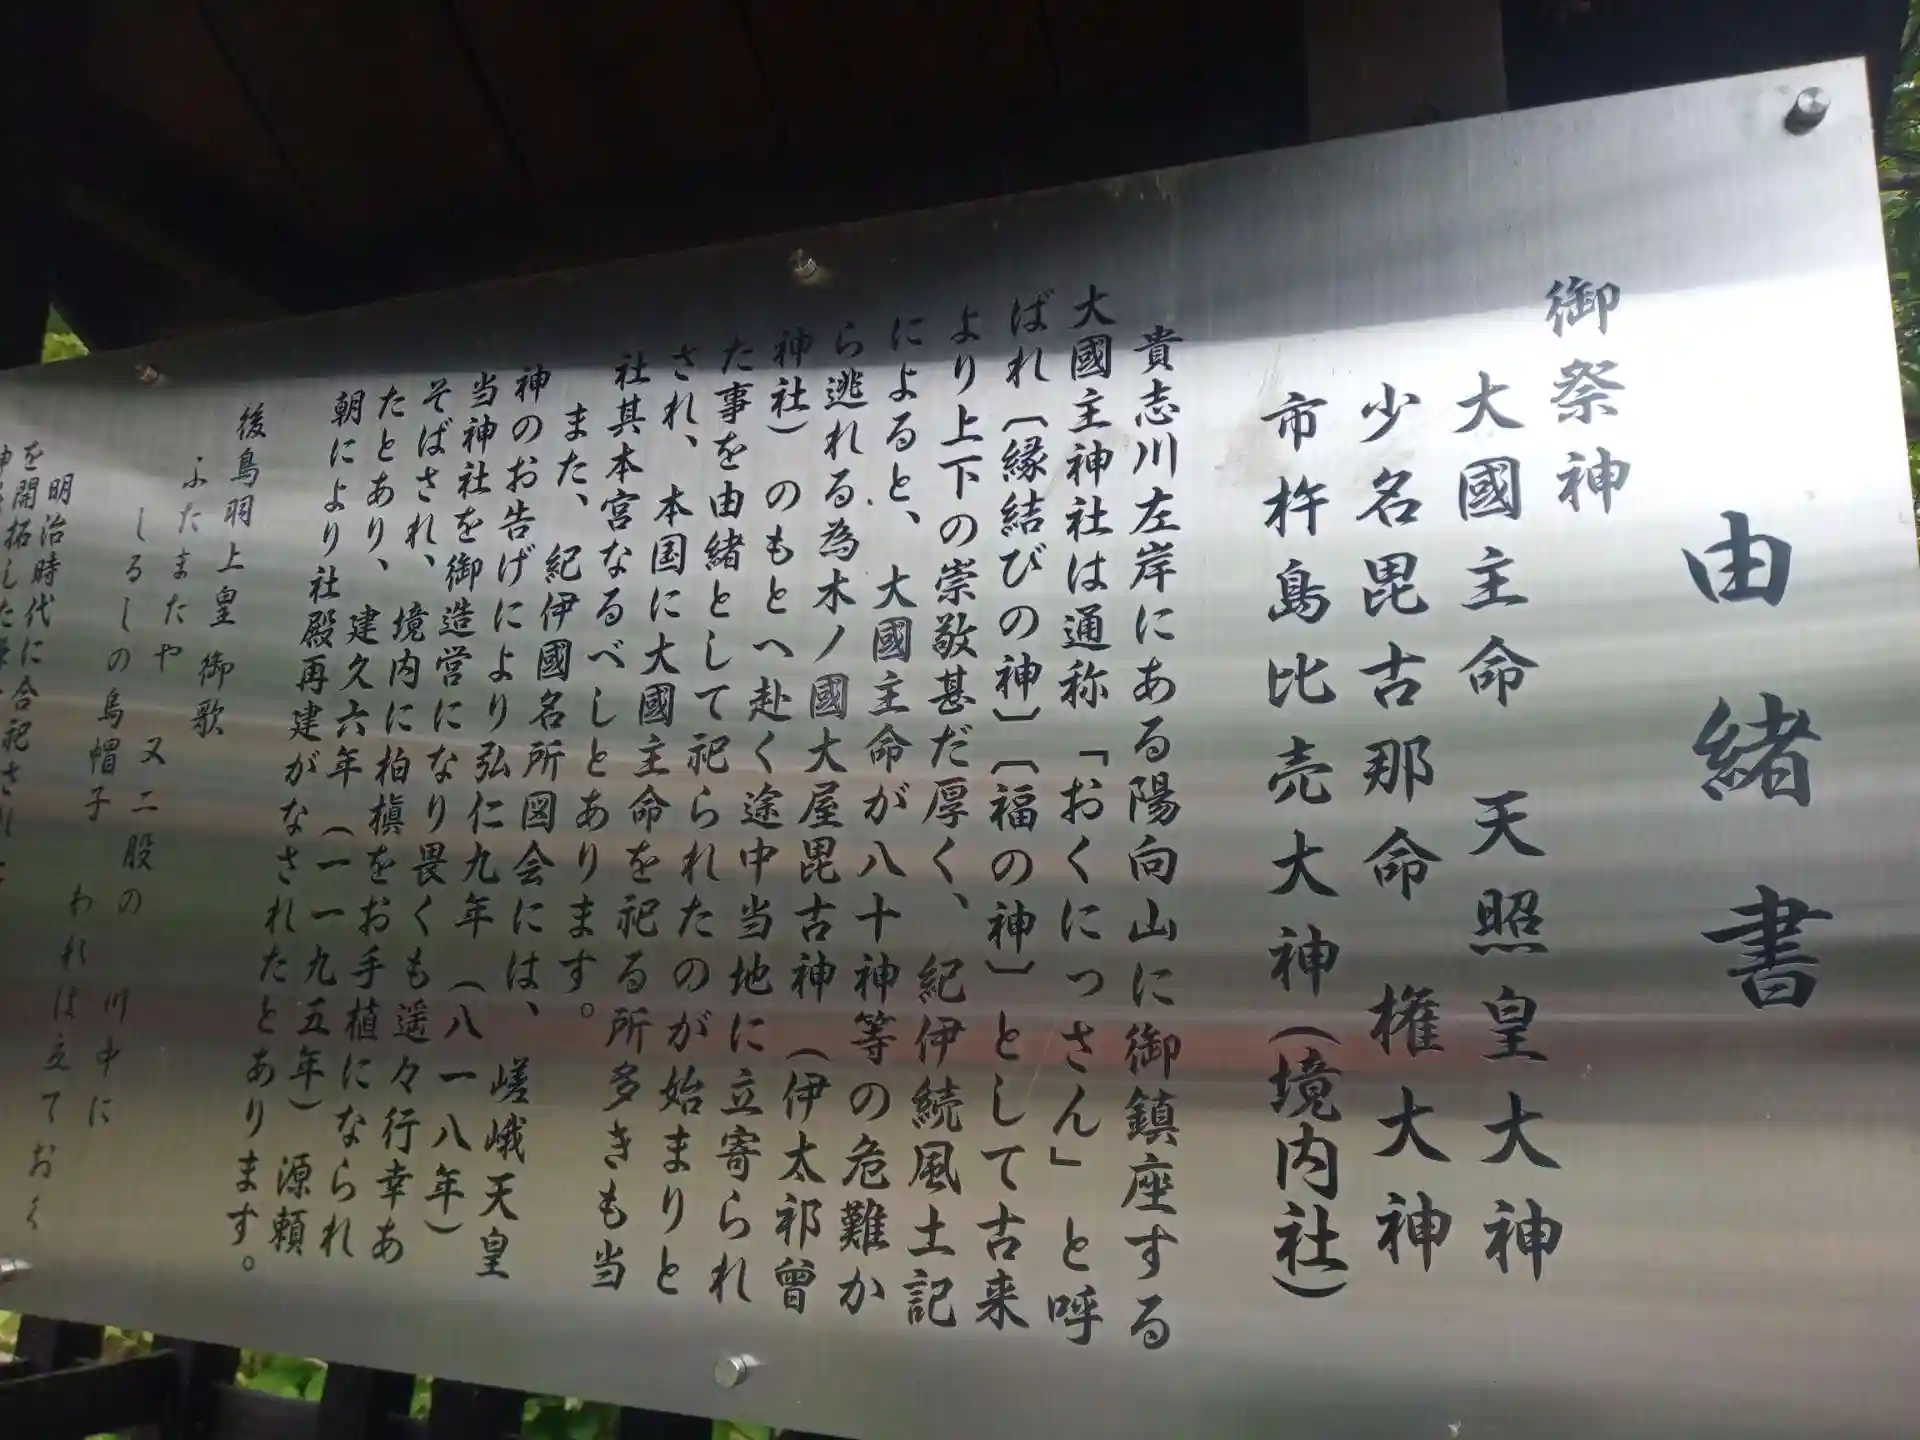 由緒書
御祭神
大國主命 天照皇大神
少名毘古那命 権大神
市杵島比売大神(境内社)
貴志川左岸にある陽向山に御鎮座する
大國主神社は通称「おくにっさん」と呼
ばれ〔縁結びの神〕〔福の神〕として古来
より上下の崇敬甚だ厚く、紀伊続風土記
によると、大國主命が八十神等の危難か
ら逃れる為木ノ國大屋毘古神(伊太祁曽
神社)のもとへ赴く途中当地に立寄られ
た事を由緒として祀られたのが始まりと
され、本国に大國主命を祀る所多きも当
社其本宮なるべしとあります。
また、紀伊國名所図会には、嵯峨天皇
神のお告げにより弘仁九年(八一八年)
当神社を御造営になり畏くも遥々行幸あ
そばされ、境内に柏槇をお手植になられ
たとあり、建久六年(一一九五年)源頼
朝により社殿再建がなされたとあります。
後鳥羽上皇 御歌
ふたまたや 又二股の 川中に
しるしの烏帽子 われは立ておく
明治時代に合祀され
を開拓した